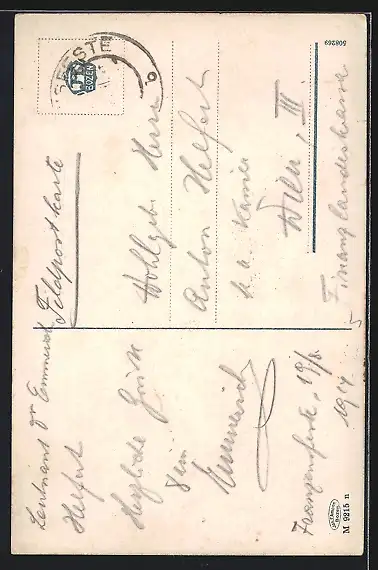 FESTE
BOZEN
508269
Feldpostkarte
Wohlgeb. Herrn
Anton Helfert
k.k.
Wien, III
Finanzlandeskasse
Leutnant Dr Emmerich
Helfert
Herzliche Grüße
Dein
Emmerich
Franzensfeste, 19/8
1914
M 9215 n